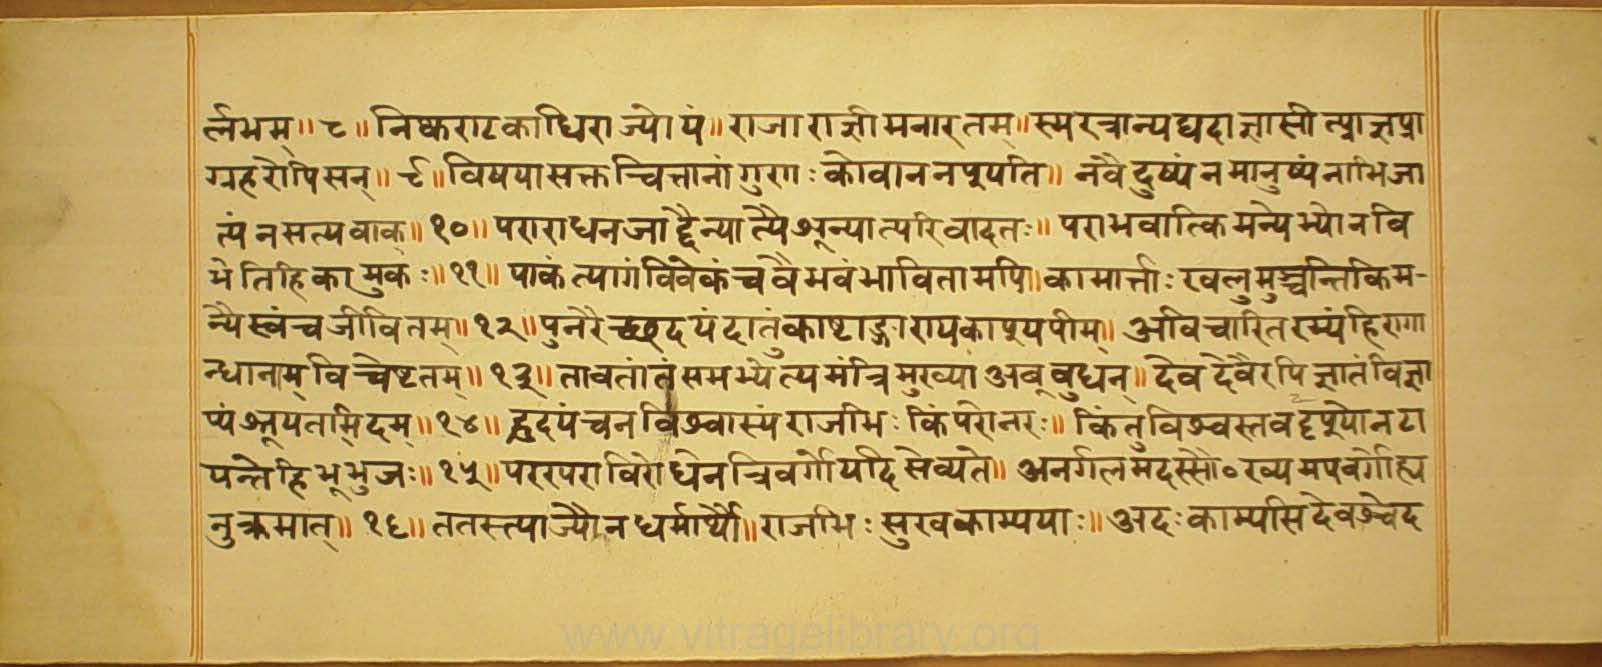 र्लभम्॥ ८॥ निष्कराटकाधिराज्योयं॥ राजाराज्ञीमनारतम्॥ स्मरन्नान्यद्यदाज्ञासीत्प्राज्ञप्रा
ग्रहरोपिसन्॥ ९॥ विषयासक्तचित्तानां गुरणः कोवाननपूपति॥ नवैदुष्यं नमानुष्यं नाभिजा
त्यं नसत्यवाक्॥ १०॥ पराराधनजाद्दैन्यात्पैश्रून्यात्परिवादतः॥ पराभवात्किमन्येभ्योनवि
भेतिहिकामुकः॥ ११॥ पाकं त्यागंविवेकंच वैभवंभावितामपि॥ कामार्त्ताः खलुमुञ्चन्तिकिम-
न्यैस्वंच जीवितम्॥ १२॥ पुनरैच्छदयंदातुंकाष्टाङ्गारायकापूयपीम्॥ अविचारितरम्यंहिरागा
न्धानाम् विचेष्टतम्॥ १३॥ तावतांतंसमभ्येत्यमंत्रिमुख्यां अवूवुधन्॥ देवदेवैरपिज्ञातंविज्ञा
प्यं श्रूयतामिदम्॥ १४॥ हृदयंचनविश्वास्यंराजभिः किंपरोनरः॥ किंतुविश्वस्तवदृपूयोनटा
यन्तेहिभूभुजः॥ १५॥ परस्पराविरोधेनत्रिवर्गोयदिसेव्यते॥ अनर्गलमदस्सौ०ख्यमपवर्गोह्य
नुक्रमात्॥ १६॥ ततस्त्याज्यौनधर्मार्थौ॥ राजभिः सुखकाम्ययाः॥ अदः काम्यसिदेवश्चेद
www.vitragelibrary.org